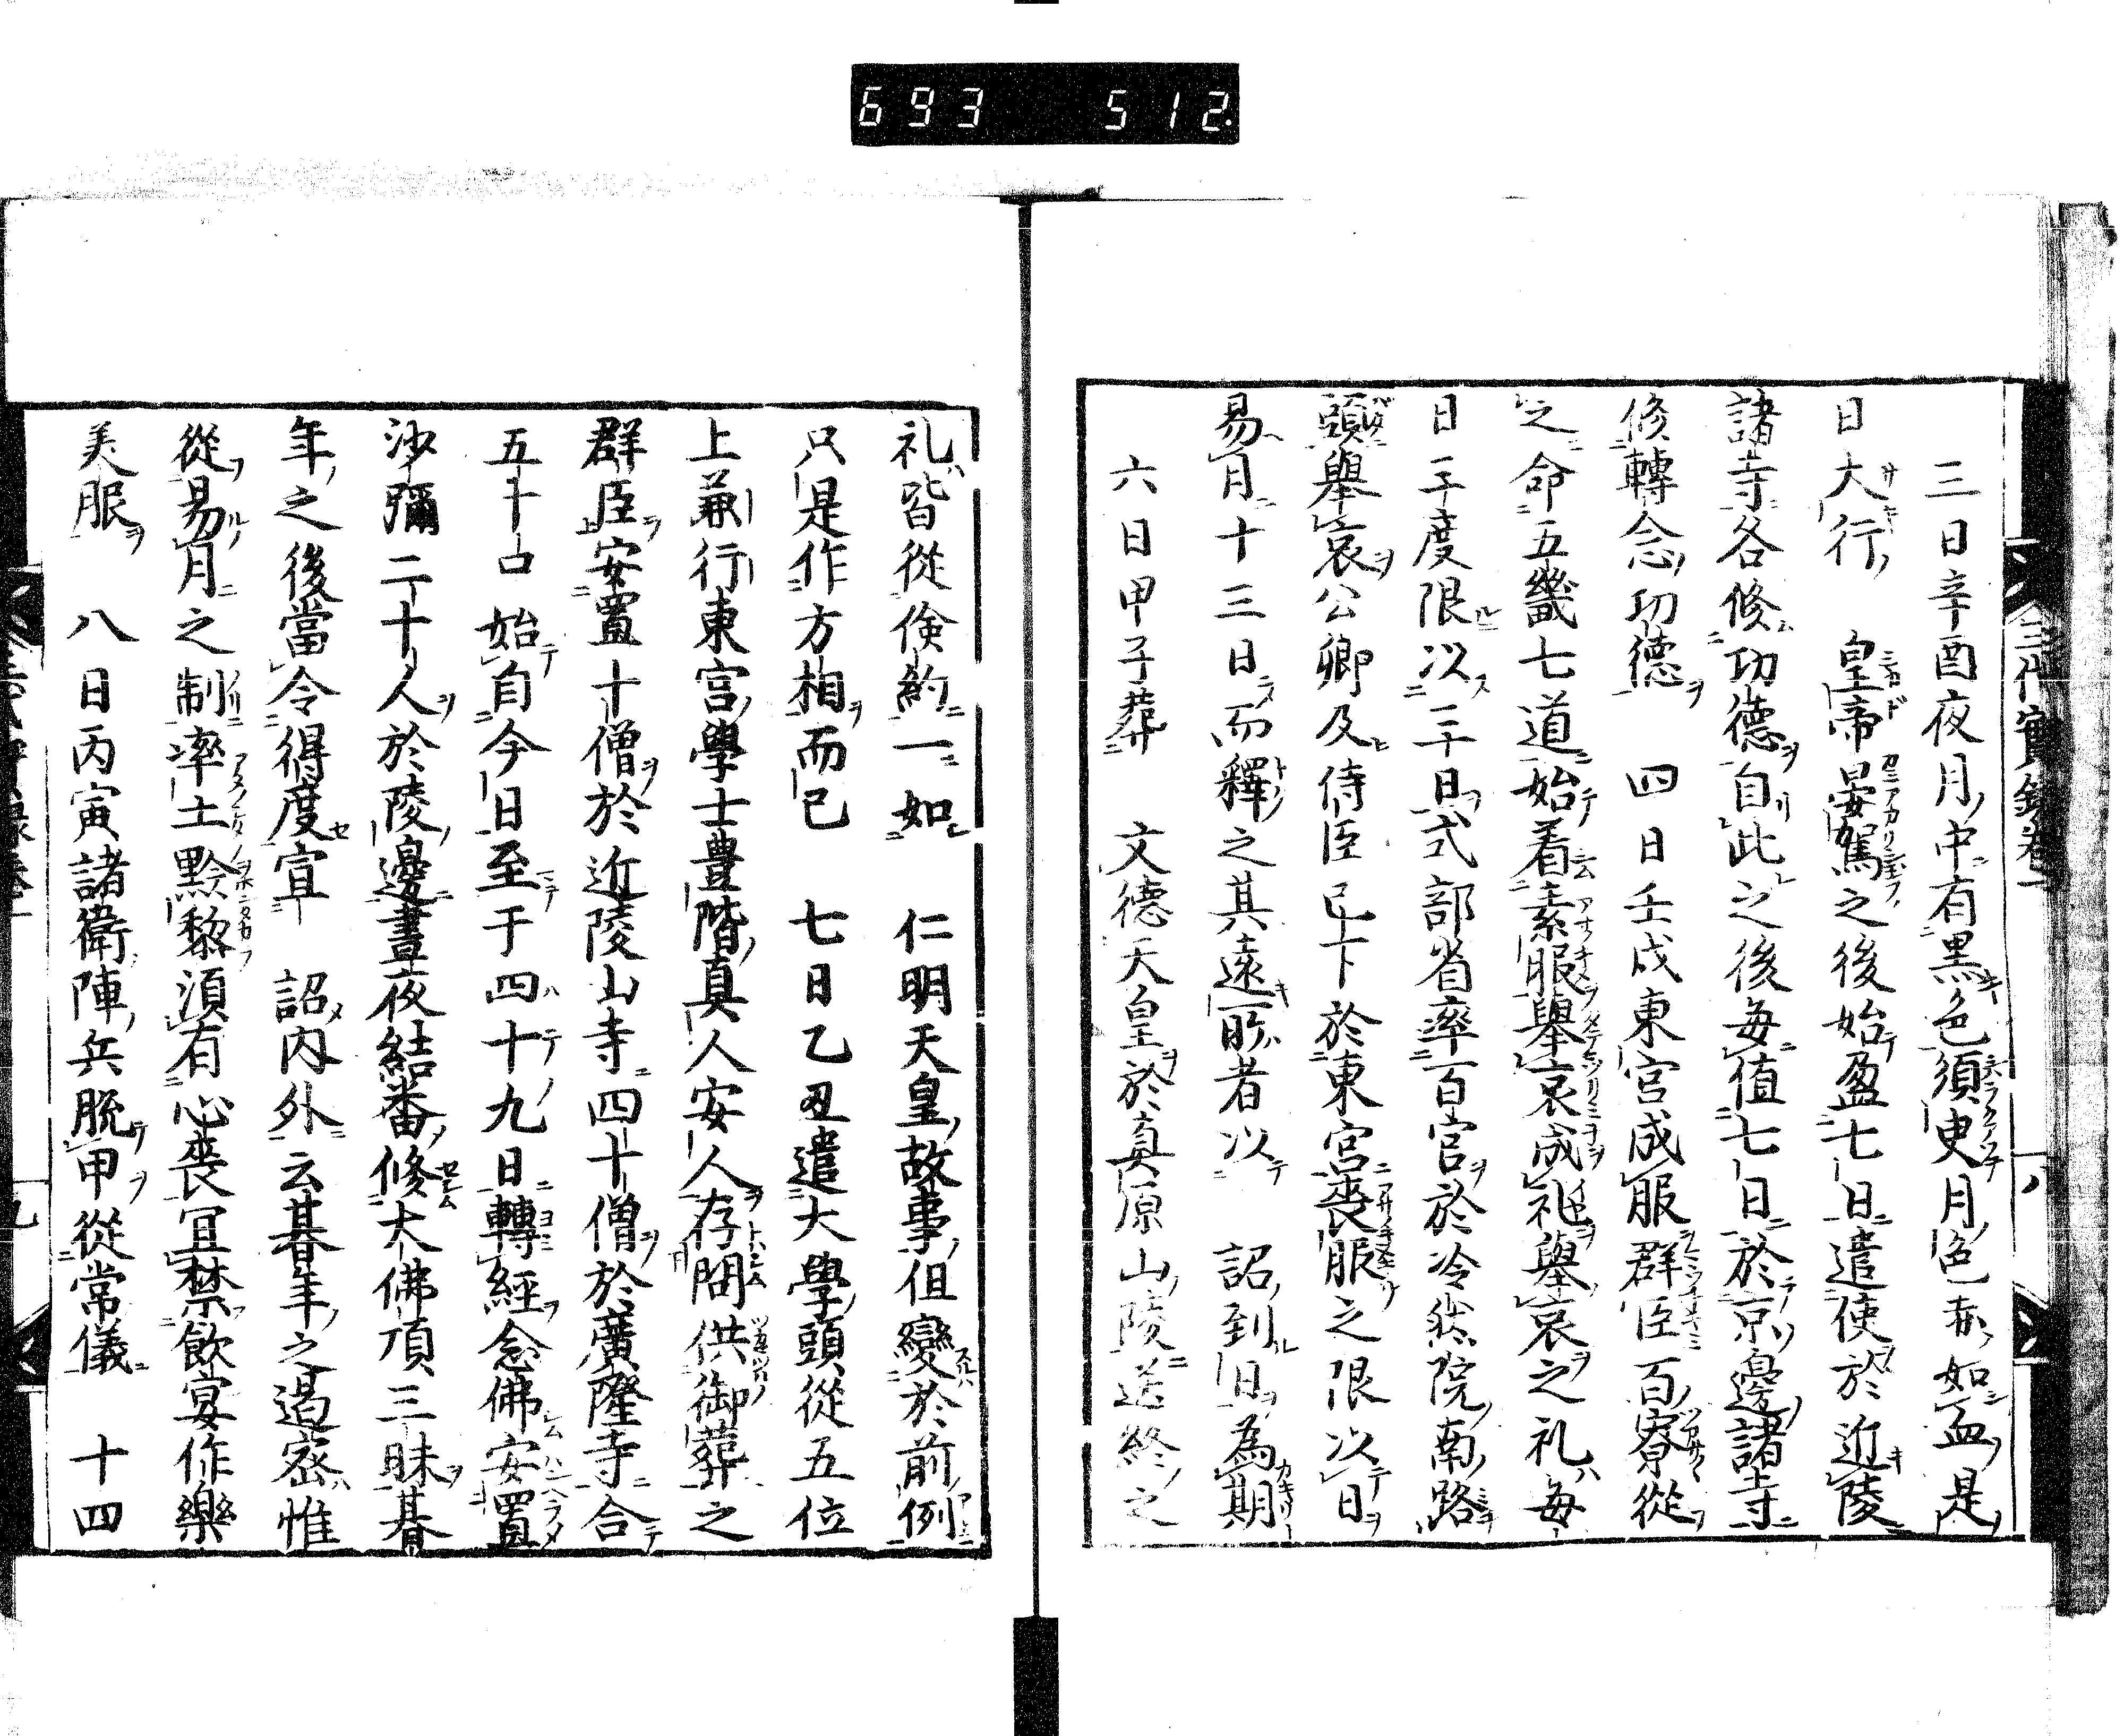 693 512
三日辛酉夜月中有黑色須臾月色赤如血是
日大行 皇帝晏駕之後始盈七日遣使於近陵
諸寺各修功德自此之後每值七日於京邊諸寺
修轉念功德 四日壬戌東宮成服群臣百寮從
之命五畿七道始着素服舉哀成礼舉哀之礼每
日三度限以三日式部省率百官於冷然院南路
頭舉哀公卿及侍臣已下於東宮喪服之限以日
易月十三日而釋之其遠所者以 詔到日為期
六日甲子葬 文德天皇於真原山陵送終之
礼皆從儉約一如 仁明天皇故事但變於前例
只是作方相而已 七日乙丑遣大學頭從五位
上兼行東宮學士豊階真人安人存問供御葬之
群臣安置十僧於近陵山寺四十僧於廣隆寺合
五十口 始自今日至于四十九日轉經念佛安置
沙彌二十人於陵邊晝夜結番修大佛頂三昧朞
年之後當令得度宣 詔內外云朞年之遏密惟
從易月之制率土黔黎湏有心喪冝禁飲宴作樂
美服 八日丙寅諸衛陣兵脫甲從常儀 十四
三代實錄卷一
八
九